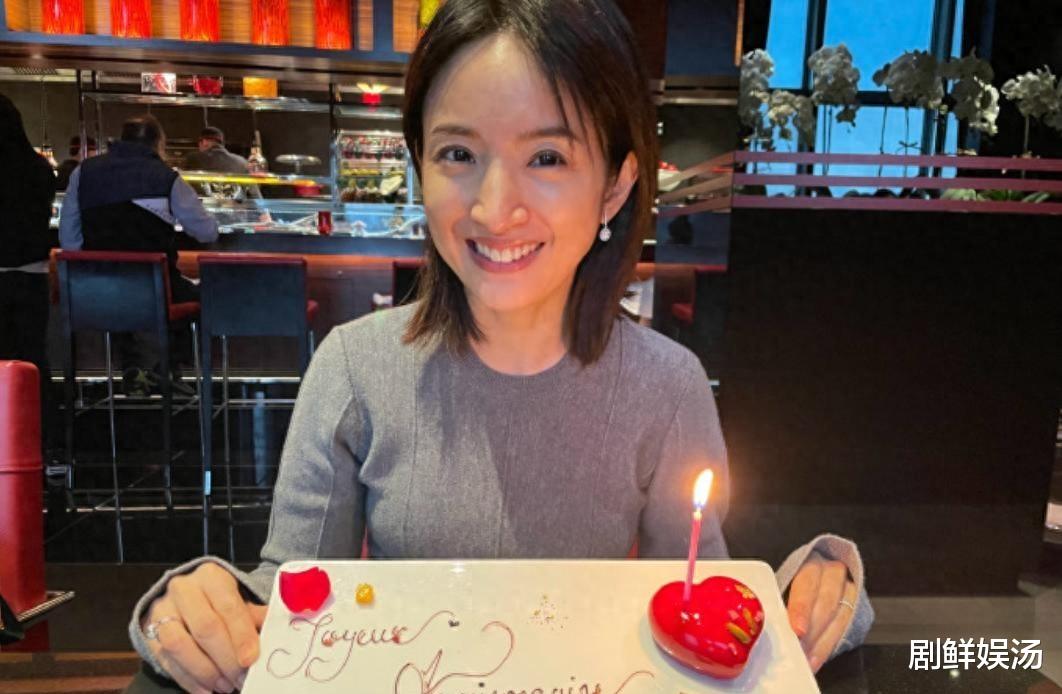 Joyeux
Anniversaire
剧鲜娱汤